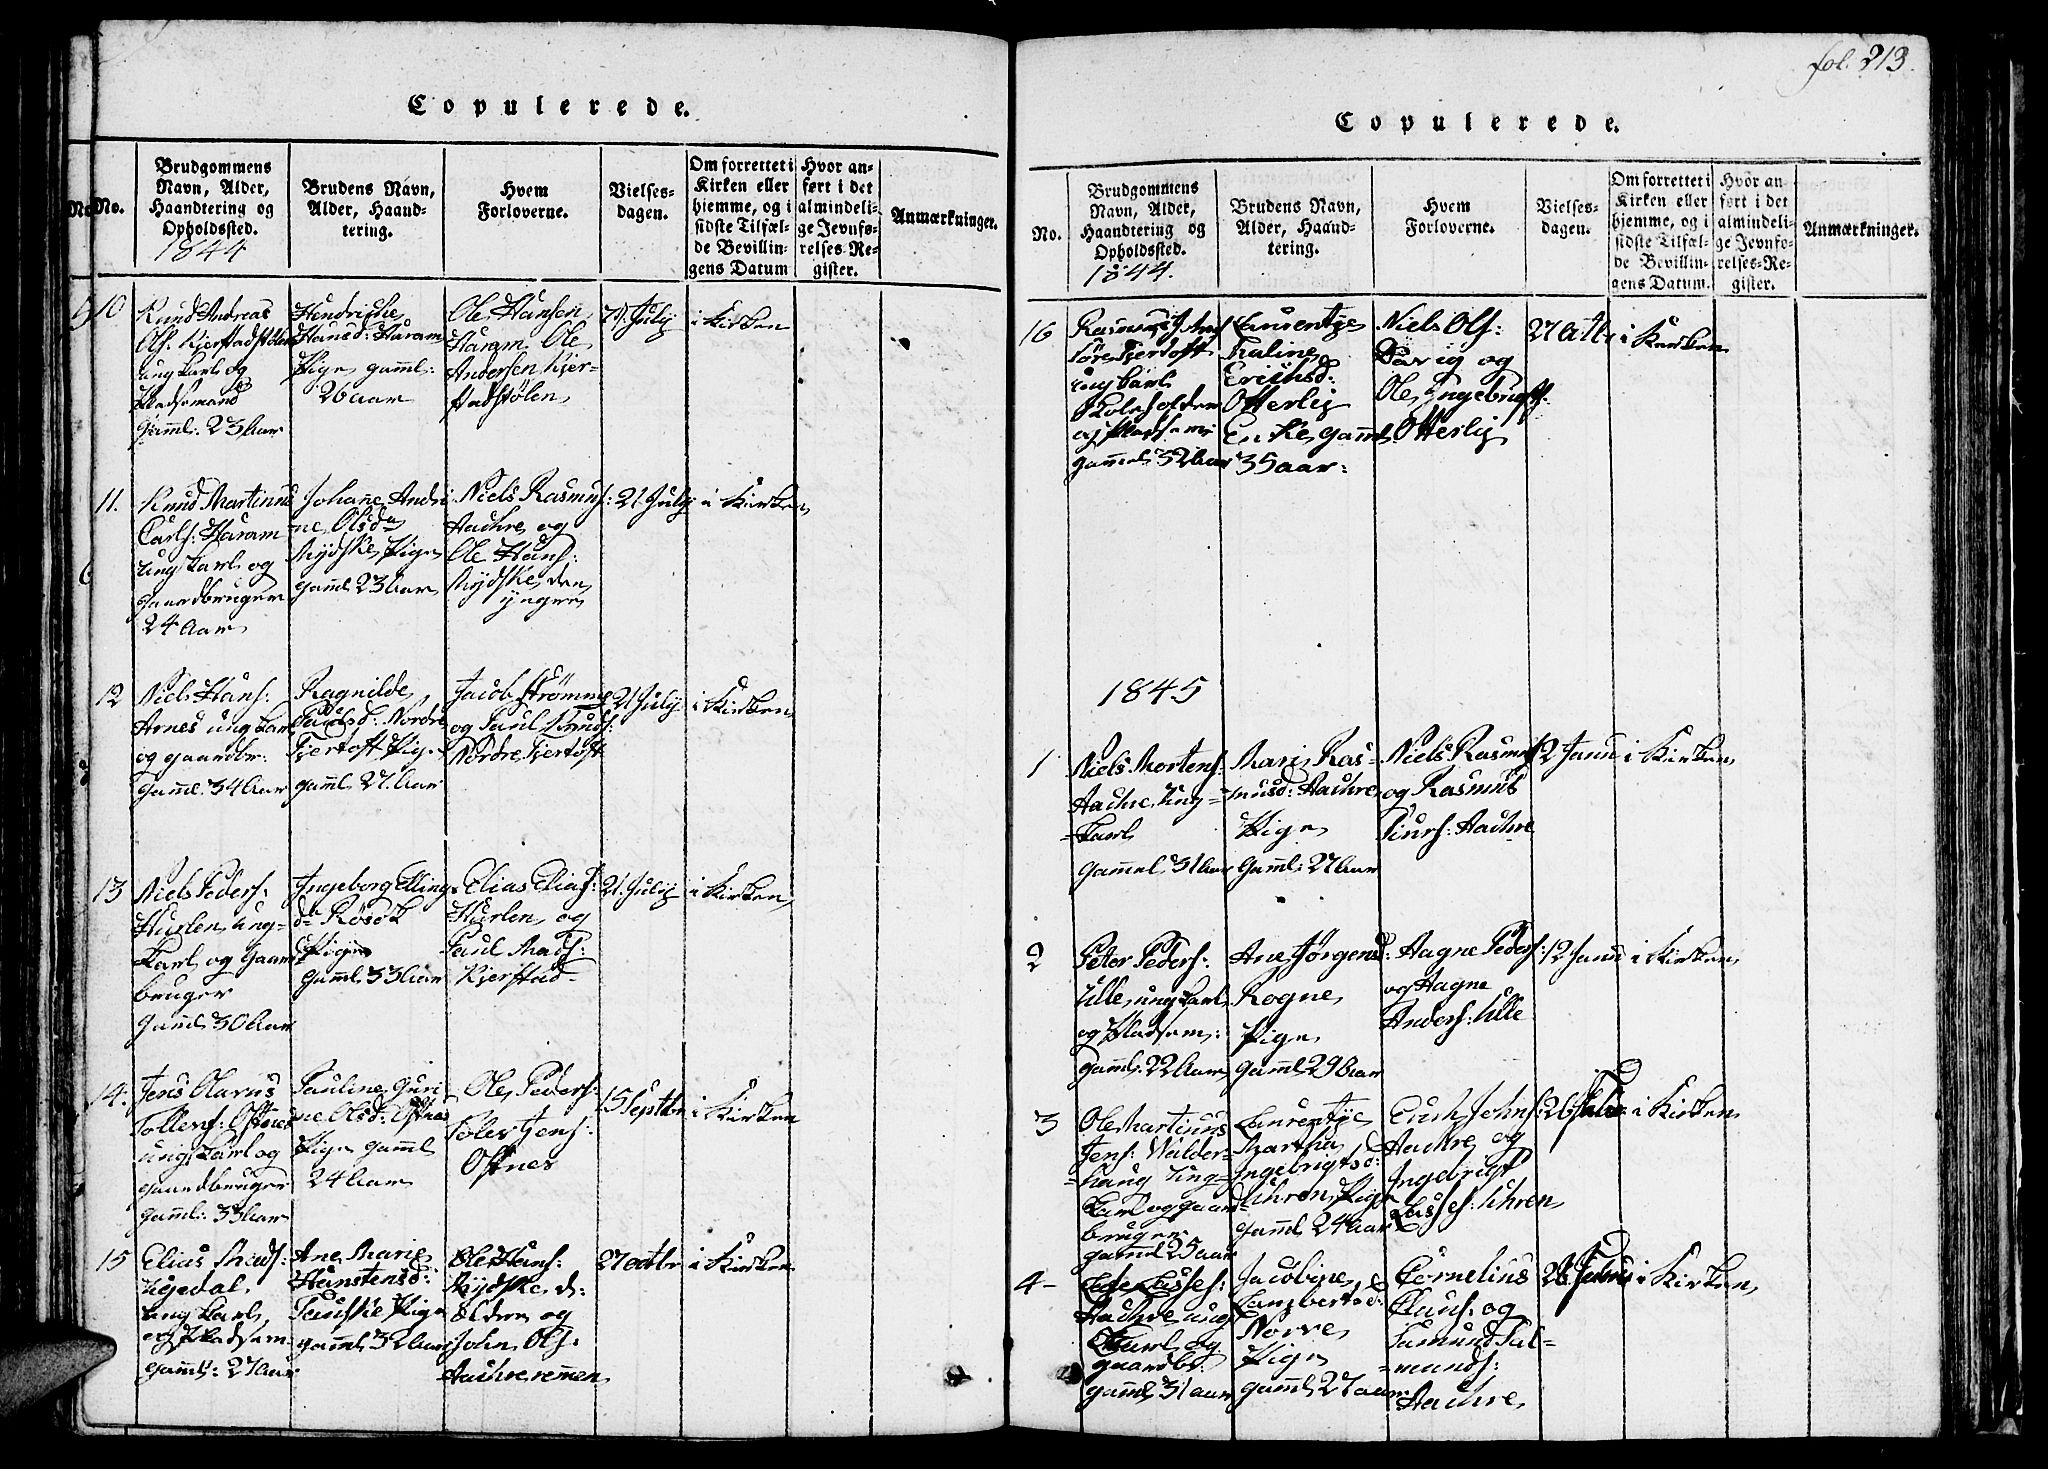 Copulerede.
No.
No.
Brudgommens Navn, Alder, Haandtering og Opholdssted.
1844
Brudens Navn, Alder, Haandtering.
Hvem Forloverne.
Vielsesdagen.
Om forrettet i Kirken eller hjemme, og i sidste Tilfælde Bevillingens Datum
Hvor anført i det almindelige Jevnførelses-Register.
Anmærkninger.
10
Knud Andreas
Ols: Kjerstadstølen
ung Karl og
Pladsemand
gamml: 23 Aar
Hendrikke
Hansd: Haram
Pige gamml:
26 Aar
Ole Hansen
Haram Ole
Andersen Kjer-
stadstølen
21 July
i Kirken
11.
Knud Martinus
Carls: Haram
ung karl og
gaardbruger
24 Aar
Johane Andri
ne Olsdr
Nydske Pige
gaml 23 Aar
Niels Rasmus:
Aachre og
Ole Hans:
Nydske den
yngre
21 July
i Kirken
12
Niels Hans:
Arnes ung Karl
og gaardbr:
Gamml. 34 Aar
Ragnilde
Paulsd: Nordre
Fjertoft Pige
gaml. 27. Aar
Jacob Strømme
og Paul Knuds:
Nordre Fjertoft
21 July
i Kirken
13
Niels Peders:
Hurlen ung-
karl og Gaard
bruger
Gaml 30 Aar
Ingeborg Elling-
dr Røsok
Pige
Gaml 33 Aar
Elias Elias:
Hurlen og
Paul Mads:
Kjerstad
21. July
i Kirken
14.
Jens Olarus
Tollevs: Ostnes
ung Karl og
gaardbruger
gaml: 33 Aar
Pauline Guri
ne Olsd: Ostnes
Pige gamml
24 Aar
Ole Peders:
Tolev Jens:
Ostnes
15 Septbr
i Kirken
15
Elias Mads:
ung Karl
og Pladsem
gaml: 27 Aar
Ane Marie
Hanstensd:
Pige
gamml 32 Aar
Ole Hans:
Nydske d:
Eldere og
John Ols:
Aachreremmen
27 octbr
i Kirken
fol. 213.
Copulerede.
No.
Brudgommens Navn, Alder, Haandtering og Opholdssted.
1844.
Brudens Navn, Alder, Haandtering.
Hvem Forloverne.
Vielsesdagen.
Om forrettet i Kirken eller hjemme, og i sidste Tilfælde Bevillingens Datum.
Hvor anført i det almindelige Jevnførelses-Register.
Anmærkninger.
16
Rasmus
Fjertoft
ung karl
Skoleholder
og Pladsem:
gammel 32 Aar
Laurentze
Kaline
Erichsd:
Otterlej
Enke gaml
35 aar:
Niels Ols:
og
Ole Ingebrigts:
Otterlej
27 octbr
i Kirken
1845
1
Niels Mortens:
Aachre Ung-
karl
gammel 31 Aar
Mari Ras-
musd: Aachre
Pige
Gaml: 27 Aar
Niels Rasmus
og Rasmus
Aachre
12 Janu
i Kirken
2
Peter Peders:
Ulle ung karl
og Pladsem:
gaml: 22 Aar
Ane Jørgensd:
Rogne
Pige
gaml 29 Aar
Aagne Peders:
og Aagne
Anders: Ulle
12 Janu
i Kirken
3
Ole Martinus
Jens: Walder-
haug Ung-
karl og gaard
bruger
gaml 25 aar
Laurentze
Martha
Ingebrigtsd:
Uhren Pige
gaml 24 Aar
Erich Johns:
Aachre og
Ingebrigt
Lasses: Uhren
26 Febr
i Kirken
4
Lasse Lasses:
Aachre ung
Karl og
gaardbr
gaml 31 aar
Jacobine
Lambertsd:
Norve
Pige
gaml 27 aar
Cornelius
Claus: og
Samund Sal-
munds:
Aachre
26 Febru
i Kirken